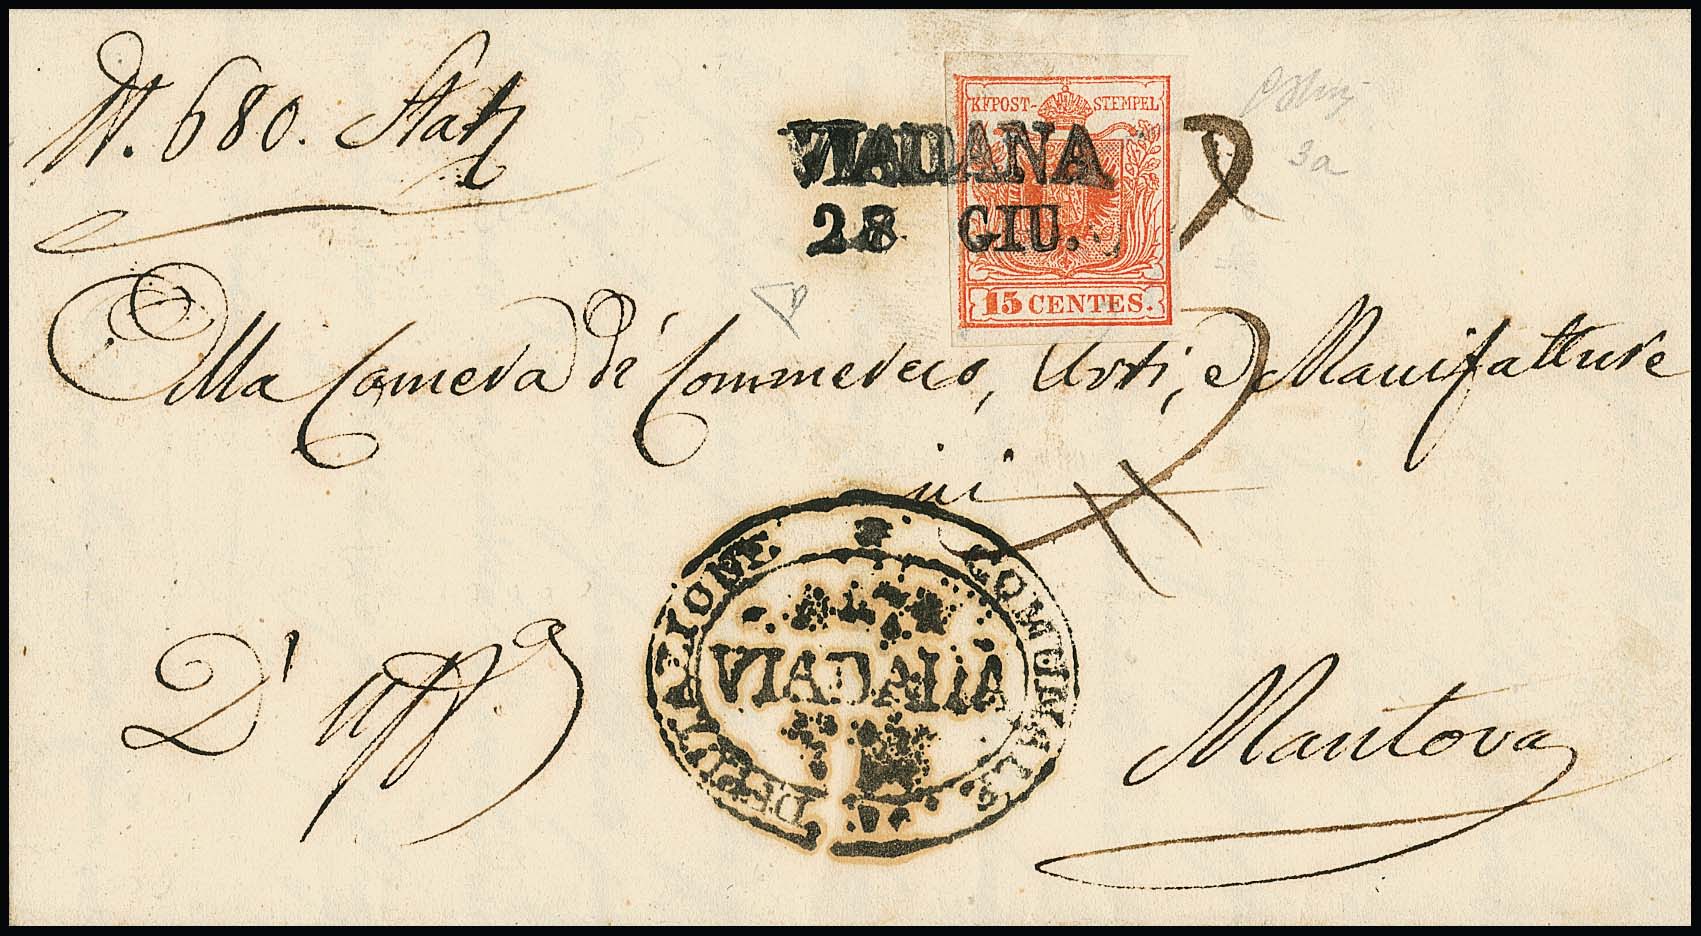 N. 680. Stat
KKPOST-STEMPEL
VIADANA
28 GIU.
15 CENTES.
3a
Alla Camera di Commercio, Arti, e Manifatture
in
DEPUTAZIONE COMUNALE
VIADANA
D' Uff°
Mantova